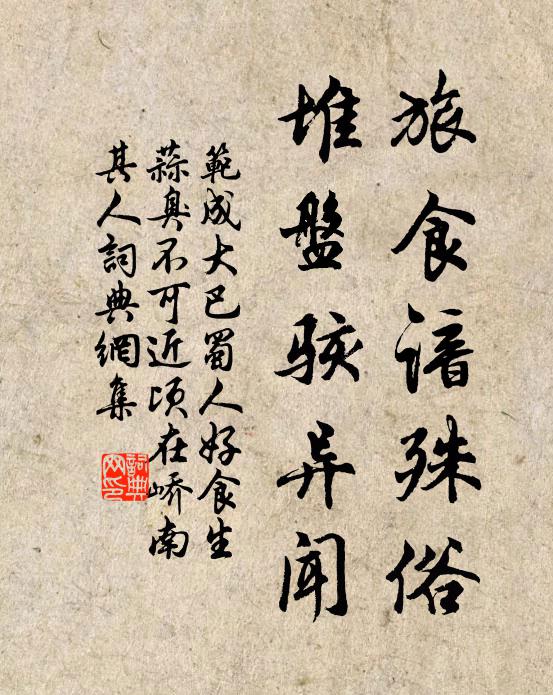 旅食谙殊俗
堆盤駭异聞
範成大巴蜀人好食生
蒜臭不可近頃在嶠南
其人詞典網集
詞典
网印